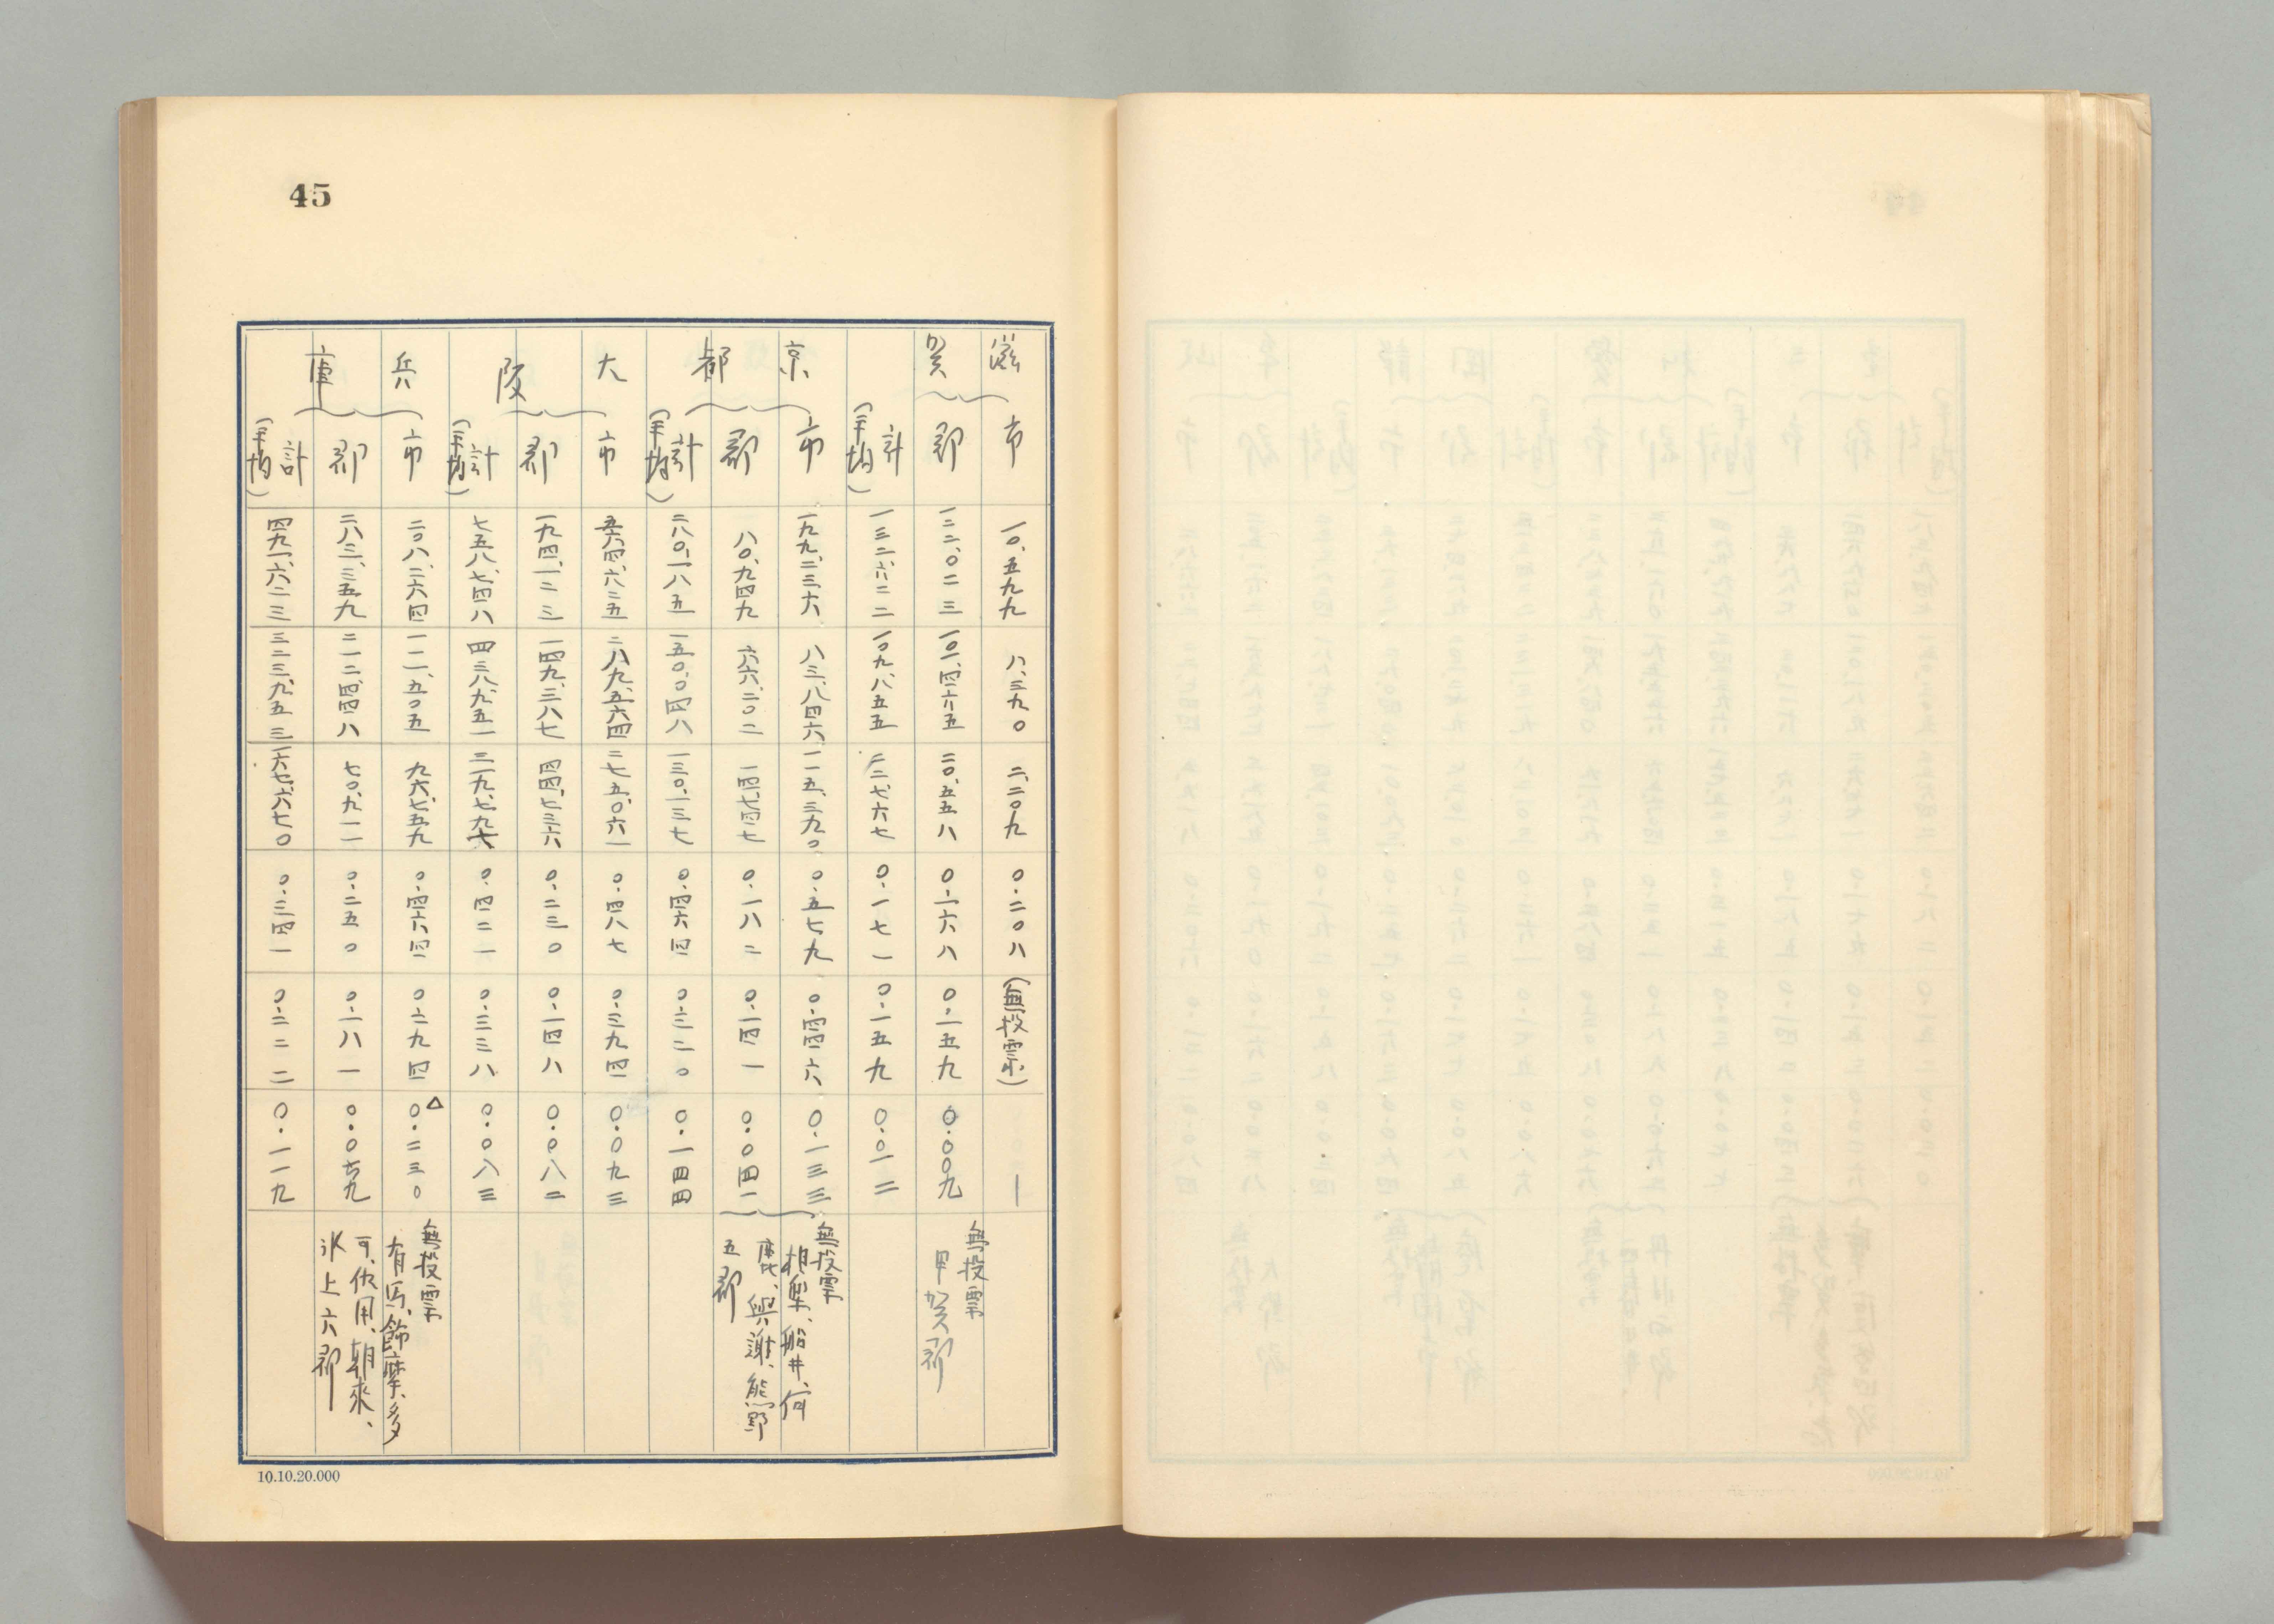 45
滋賀
市 一〇、五九九 八、三九〇 二、二〇九 〇.二〇八 （無投票） ｜
郡 一二二、〇二三 一〇一、四六五 二〇、五五八 〇.一六八 〇.一五九 〇.〇〇九
無投票
甲賀郡
計（平均） 一三二、六二二 一〇九、八五五 二二、七六七 〇.一七一 〇.一五九 〇.〇一二
京都
市 一九九、二三六 八三、八四六 一一五、三九〇 〇.五七九 〇.四四六 〇.一三三
郡 八〇、九四九 六六、二〇二 一四、七四七 〇.一八二 〇.一四一 〇.〇四一
無投票
相楽、船井、何
鹿、與謝、熊野
五郡
計（平均） 二八〇、一八五 一五〇、〇四八 一三〇、一三七 〇.四六四 〇.三二〇 〇.一四四
大阪
市 五六四、六二五 二八九、五六四 二七五、〇六一 〇.四八七 〇.三九四 〇.〇九三
郡 一九四、一二三 一四九、三八七 四四、七三六 〇.二三〇 〇.一四八 〇.〇八二
計（平均） 七五八、七四八 四三八、九五一 三一九、七九七 〇.四二一 〇.三三八 〇.〇八三
兵庫
市 二〇八、二六四 一一一、五〇五 九六、七五九 〇.四六四 〇.二九四 △〇.二三〇
郡 二八三、三五九 二一二、四四八 七〇、九一一 〇.二五〇 〇.一八一 〇.〇六九
無投票
有馬、飾磨、多
可、佐用、朝來、
氷上六郡
計（平均） 四九一、六二三 三二三、九五三 一六七、六七〇 〇.三四一 〇.二二二 〇.一一九
10.10.20.000